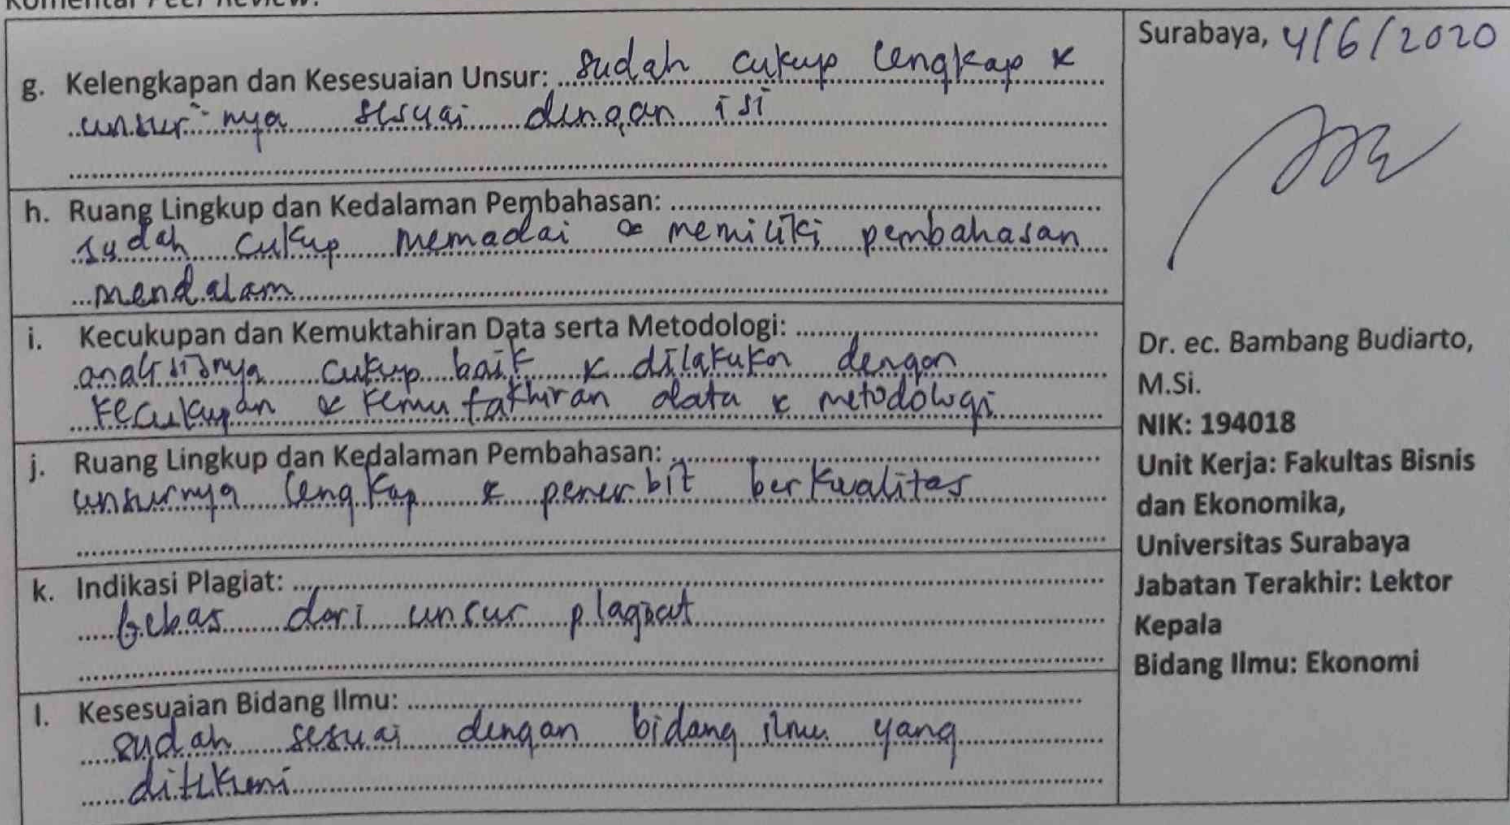 Komentar Peer Review:
g. Kelengkapan dan Kesesuaian Unsur: sudah cukup lengkap &
unsurnya sesuai dengan isi
h. Ruang Lingkup dan Kedalaman Pembahasan:
sudah cukup memadai & memiliki pembahasan
mendalam
i. Kecukupan dan Kemuktahiran Data serta Metodologi:
analisisnya cukup baik & dilakukan dengan
kecukupan & kemutakhiran data & metodologi
j. Ruang Lingkup dan Kedalaman Pembahasan:
unsurnya lengkap & penerbit berkualitas
k. Indikasi Plagiat:
bebas dari unsur plagiat
l. Kesesuaian Bidang Ilmu:
sudah sesuai dengan bidang ilmu yang
ditekuni
Surabaya, 4/6/2020
Dr. ec. Bambang Budiarto,
M.Si.
NIK: 194018
Unit Kerja: Fakultas Bisnis
dan Ekonomika,
Universitas Surabaya
Jabatan Terakhir: Lektor
Kepala
Bidang Ilmu: Ekonomi